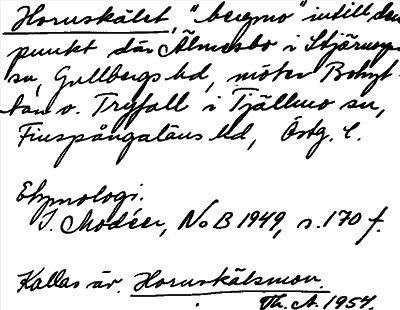 Hornskälet, "bergmo" intill den
punkt där Älmesbo i Stjärnorps
sn, Gullbergs hd, möter
tan o. Tryfall i Tjällmo sn,
Finspångaläns hd, Östg. l.
Etymologi.
I. Modéer, NoB 1949, s. 170 f.
Kallas äv. Hornskälsmon.
Th. A. 1957.